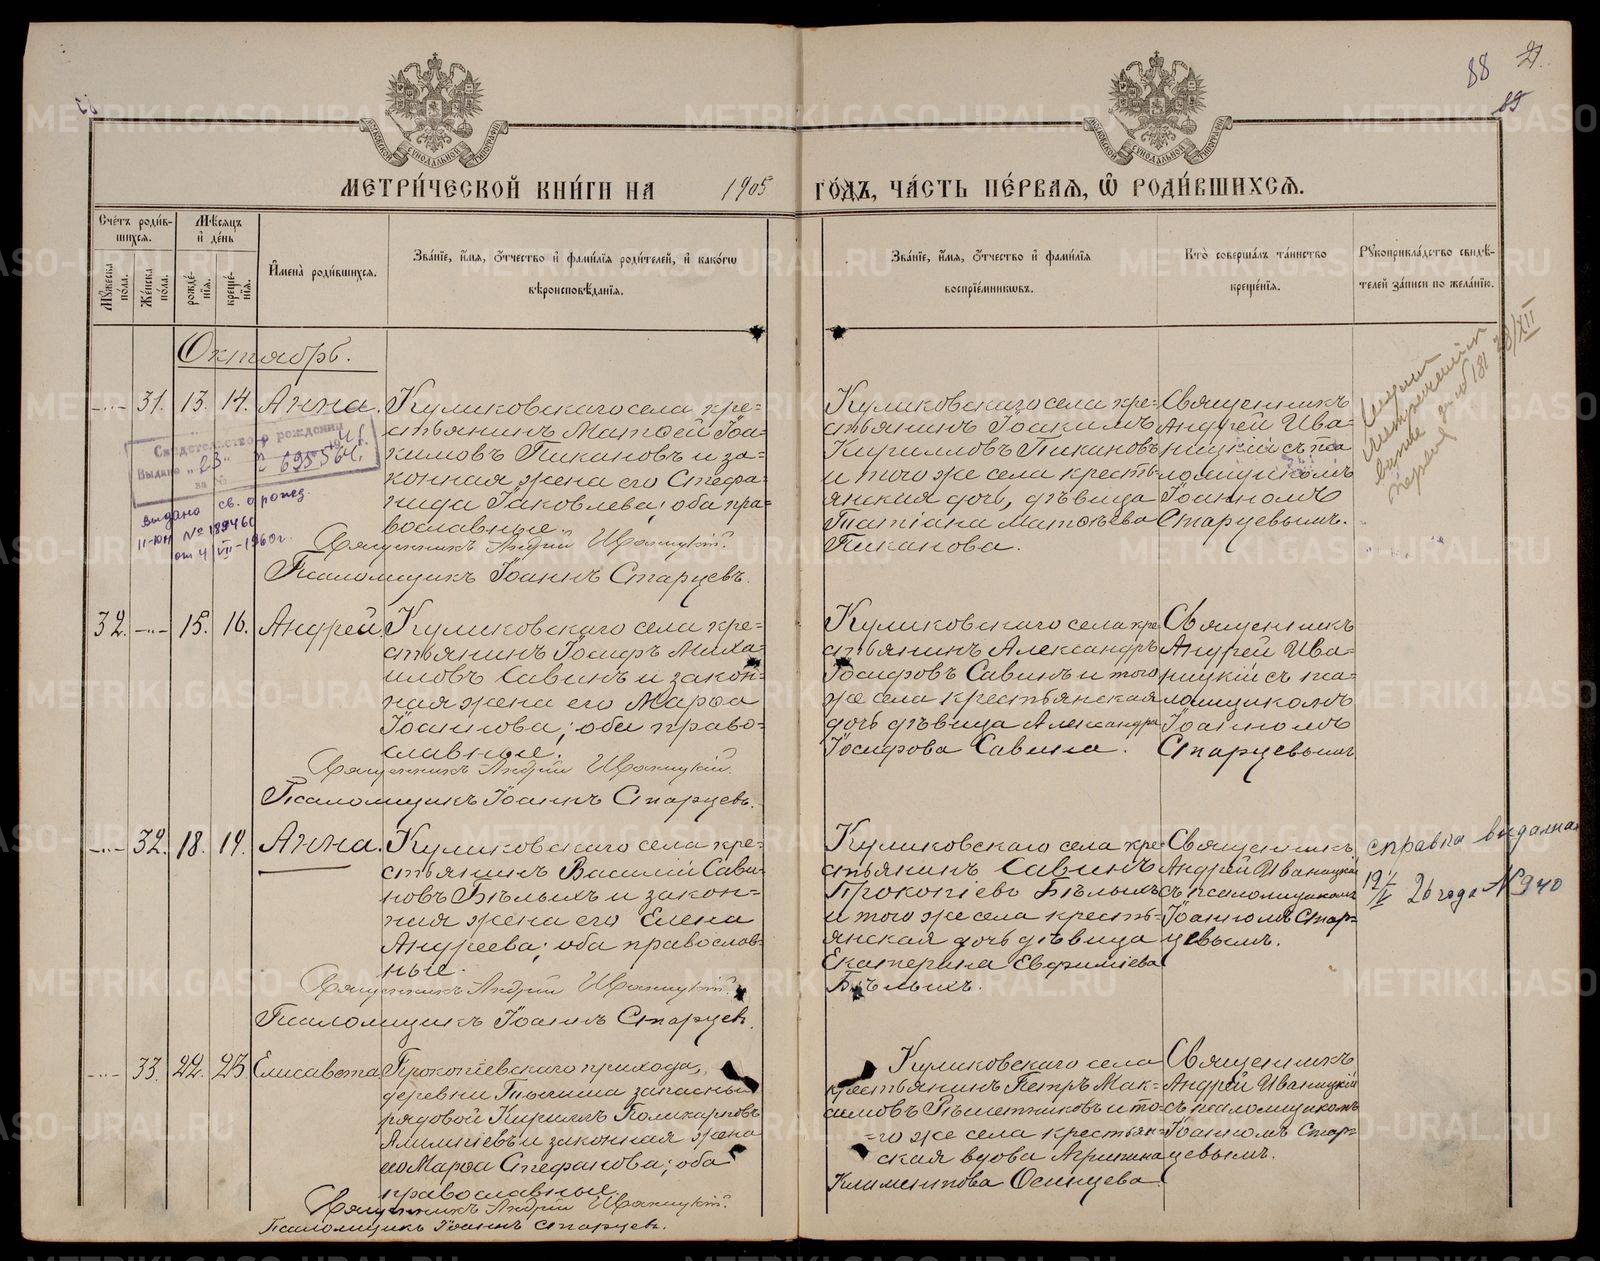 88
МЕТРИ́ЧЕСКОЙ КНИ́ГИ НА 1905 ГО́ДЪ, ЧА́СТЬ ПЕ́РВАѦ, Ѡ РОДИ́ВШИХСѦ.
Счётъ роди́вшихсѧ.
Мꙋ́жеска по́ла.
Же́нска по́ла.
Мѣ́сѧцъ и҆ де́нь
рожде́нїѧ.
креще́нїѧ.
И҆мена̀ роди́вшихсѧ.
Зва́нїе, и҆́мѧ, ѻ҆́тчество и҆ фами́лїѧ роди́телей, и҆ како́гѡ
вѣроисповѣ́данїѧ.
Зва́нїе, и҆́мѧ, ѻ҆́тчество и҆ фами́лїѧ
воспрїе́мниковъ.
Кто̀ соверша́лъ та́инство
креще́нїѧ.
Рꙋкоприкла́дство свидѣ́-
телей за́писи по жела́нїю.
Октябрь.
31. 13. 14. Анна.
Куликовскаго села кре=
стьянинъ Матѳей Іоа=
кимовъ Пикановъ и за=
конная жена его Стефа=
нида Іаковлева; оба пра=
вославные.
Священникъ Андрей Иваницкій.
Псаломщикъ Іоаннъ Старцевъ.
Свидетельство о рождении
Выдано „23“
за № 695564
выдано св. о рожд.
II-ЮН № 189460
от 4/VII-1960г.
Куликовскаго села кре=
стьянинъ Іоакимъ
Кирилловъ Пикановъ
и того же села кресть-
янская дочь, дѣвица
Татіана Матѳѣева
Пиканова.
Священникъ
Андрей Ива=
ницкій съ пса
ломщикомъ
Іоанномъ
Старцевымъ.
32. 15. 16. Андрей.
Куликовскаго села кре=
стьянинъ Іосифъ Миха=
иловъ Савинъ и закон=
ная жена его Марѳа
Іоаннова; оба право=
славные.
Священникъ Андрей Иваницкій.
Псаломщикъ Іоаннъ Старцевъ.
Куликовскаго села кре
стьянинъ Александръ
Іосифовъ Савинъ и того
же села крестьянская
дочь дѣвица Александра
Іосифова Савина.
Священникъ
Андрей Ива=
ницкій съ пса=
ломщикомъ
Іоанномъ
Старцевымъ
32. 18. 19. Анна.
Куликовскаго села кре=
стьянинъ Василій Сави-
новъ Бѣлыхъ и закон=
ная жена его Елена
Андреева; оба православ=
ные.
Священникъ Андрей Иваницкій.
Псаломщикъ Іоаннъ Старцевъ.
Куликовскаго села кре
стьянинъ Савинъ
Прокопіевъ Бѣлыхъ
и того же села кресть=
янская дочь дѣвица
Екатерина Евфиміева
Бѣлыхъ.
Священникъ
Андрей Иваницкій
съ псаломщикомъ
Іоанномъ Стар=
цевымъ.
справка выдана
26 года № 940
33. 22. 23 Елисавета
Прокопіевскаго прихода,
деревни запасный
рядовой Кириллъ Поликарповъ
и законная жена
его Марѳа Стефанова; оба
православные.
Священникъ Андрей Иваницкій.
Псаломщикъ Іоаннъ Старцевъ.
Куликовскаго села
крестьянинъ Петръ Мак=
симовъ Рѣшетниковъ и то=
=го же села крестьян=
ская вдова Агрипина
Климентова Осинцева
Священникъ
Андрей Иваницкій
съ псаломщикомъ
Іоанномъ Стар=
цевымъ.
METRIKI.GASO-URAL.RU